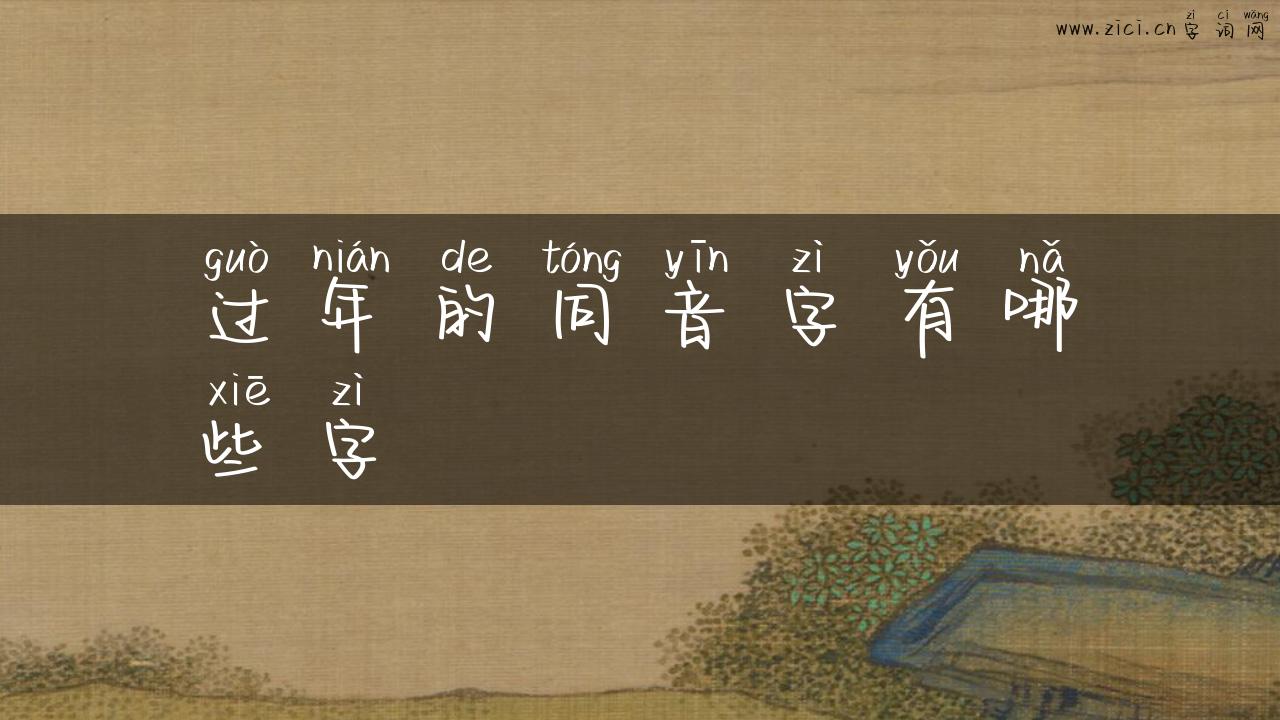 zì cí wǎng
www.zici.cn 字词网
guò nián de tóng yīn zì yǒu nǎ
过年的同音字有哪
xiē zì
些字